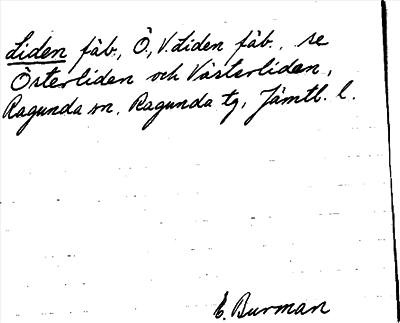 Liden fäb., Ö., V. Liden fäb., se
Österliden och Västerliden,
Ragunda sn, Ragunda tg, Jämtl. l.
E. Burman